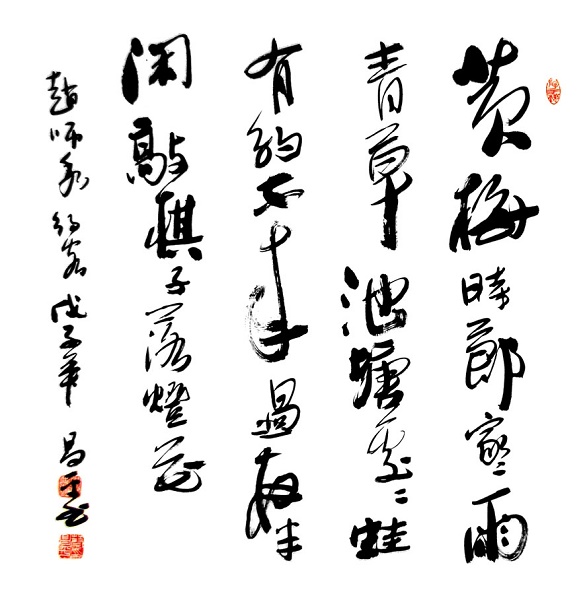 黄梅時節家々雨
青草池塘處々蛙
有約不来過夜半
閑敲棋子落燈花
趙師秀 約客 戊子年 昌